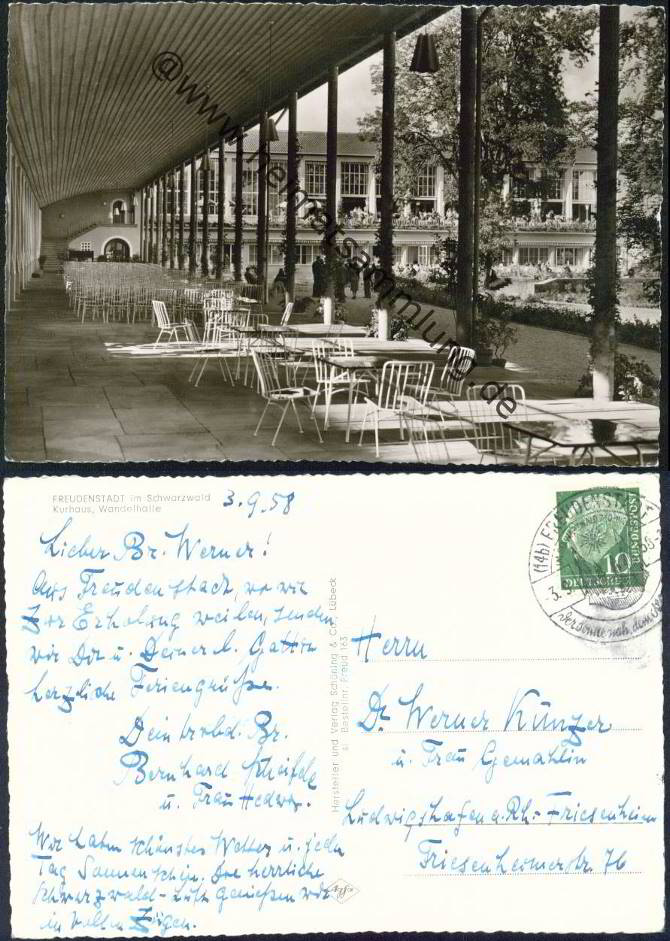 @www.heimatsammlung.de
FREUDENSTADT im Schwarzwald
Kurhaus, Wandelhalle
3.9.58
Lieber Br. Werner!
Aus Freudenstadt, wo wir
zur Erholung weilen, senden
wir Dir u. Deiner l. Gattin
herzliche Feriengrüße.
Dein trvbd. Br.
Bernhard
u. Frau Hedwig.
Wir haben schönstes Wetter u. jeden
Tag Sonnenschein. Die herrliche
Schwarzwald-Luft genießen wir
in vollen Zügen.
Hersteller und Verlag Schöning & Co., Lübeck
Bestellnr. Freud 163
Agfa
(14b) FREUDENSTADT
10
DEUTSCHE
BUNDESPOST
Herrn
Dr. Werner Künzer
u. Frau Gemahlin
Ludwigshafen a. Rh.-Friesenheim
Friesenheimerstr. 76